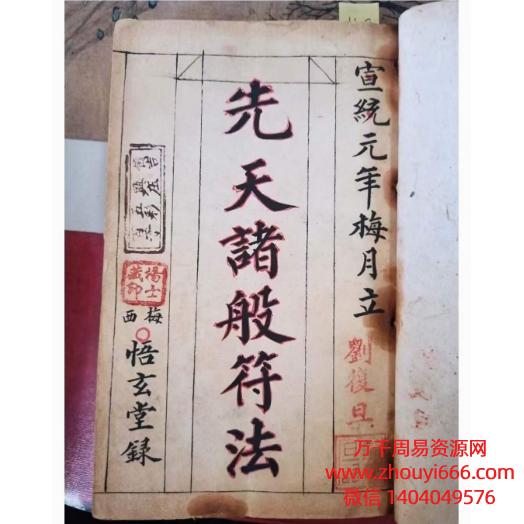 宣統元年梅月立
劉復具
先天諸般符法
楊士
藏印
梅西
悟玄堂錄
万千周易资源网
www.zhouyi666.com
微信 1404049576